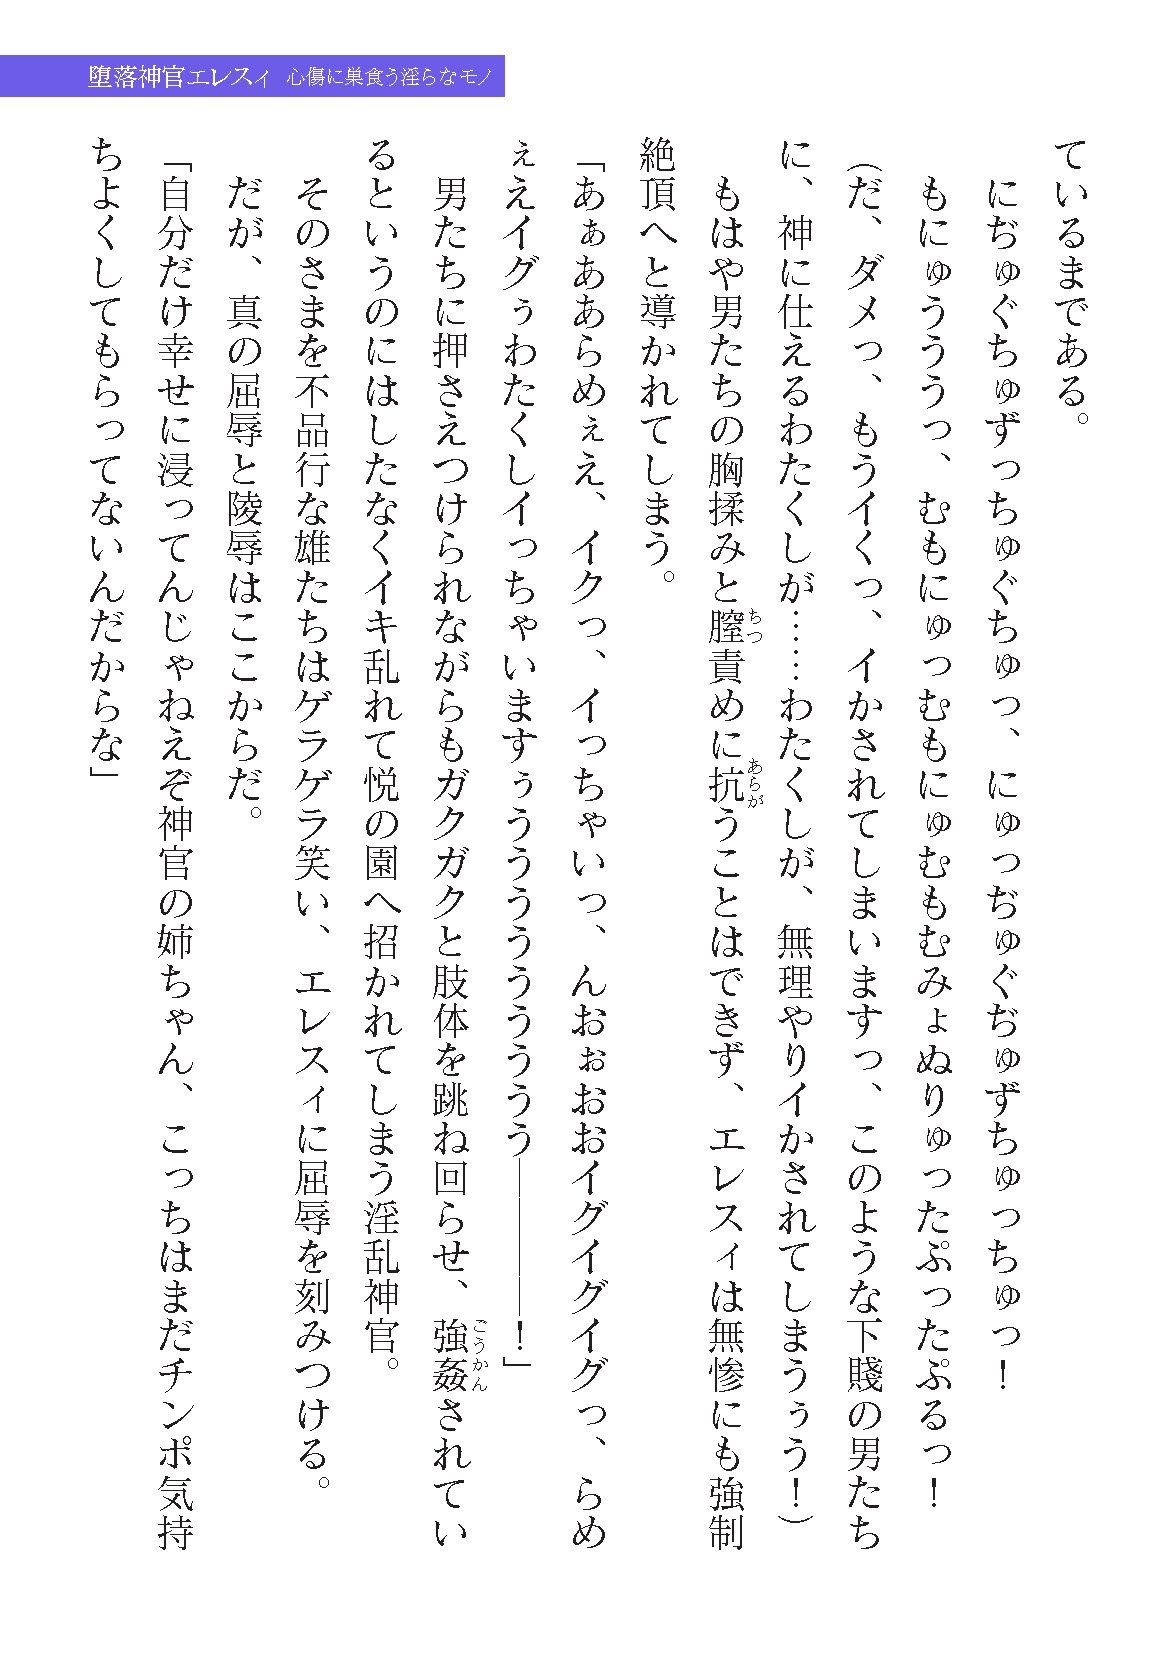 堕落神官エレスィ 心傷に巣食う淫らなモノ
ているまである。
にぢゅぐちゅずっちゅぐちゅっ、にゅっぢゅぐぢゅずちゅっちゅっ！
もにゅううっ、むもにゅっむもにゅむもむみょぬりゅったぷったぷるっ！
（だ、ダメっ、もうイくっ、イかされてしまいますっ、このような下賤の男たち
に、神に仕えるわたくしが……わたくしが、無理やりイかされてしまうぅう！）
もはや男たちの胸揉みと膣責めに抗うことはできず、エレスィは無惨にも強制
ちつ
あらが
絶頂へと導かれてしまう。
「あぁああらめぇえ、イクっ、イっちゃいっ、んおぉおおイグイグイグっ、らめ
ぇえイグぅわたくしイっちゃいますぅううううううううう――――！」
男たちに押さえつけられながらもガクガクと肢体を跳ね回らせ、強姦されてい
ごうかん
るというのにはしたなくイキ乱れて悦の園へ招かれてしまう淫乱神官。
そのさまを不品行な雄たちはゲラゲラ笑い、エレスィに屈辱を刻みつける。
だが、真の屈辱と陵辱はここからだ。
「自分だけ幸せに浸ってんじゃねえぞ神官の姉ちゃん、こっちはまだチンポ気持
ちよくしてもらってないんだからな」